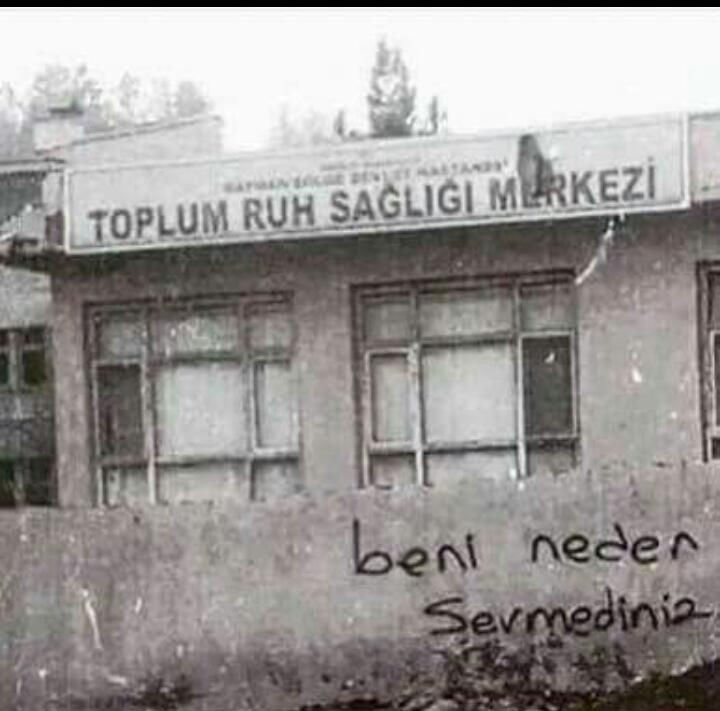 BATMAN BÖLGE DEVLET HASTANESİ
TOPLUM RUH SAĞLIĞI MERKEZİ
beni neden
Sevmediniz